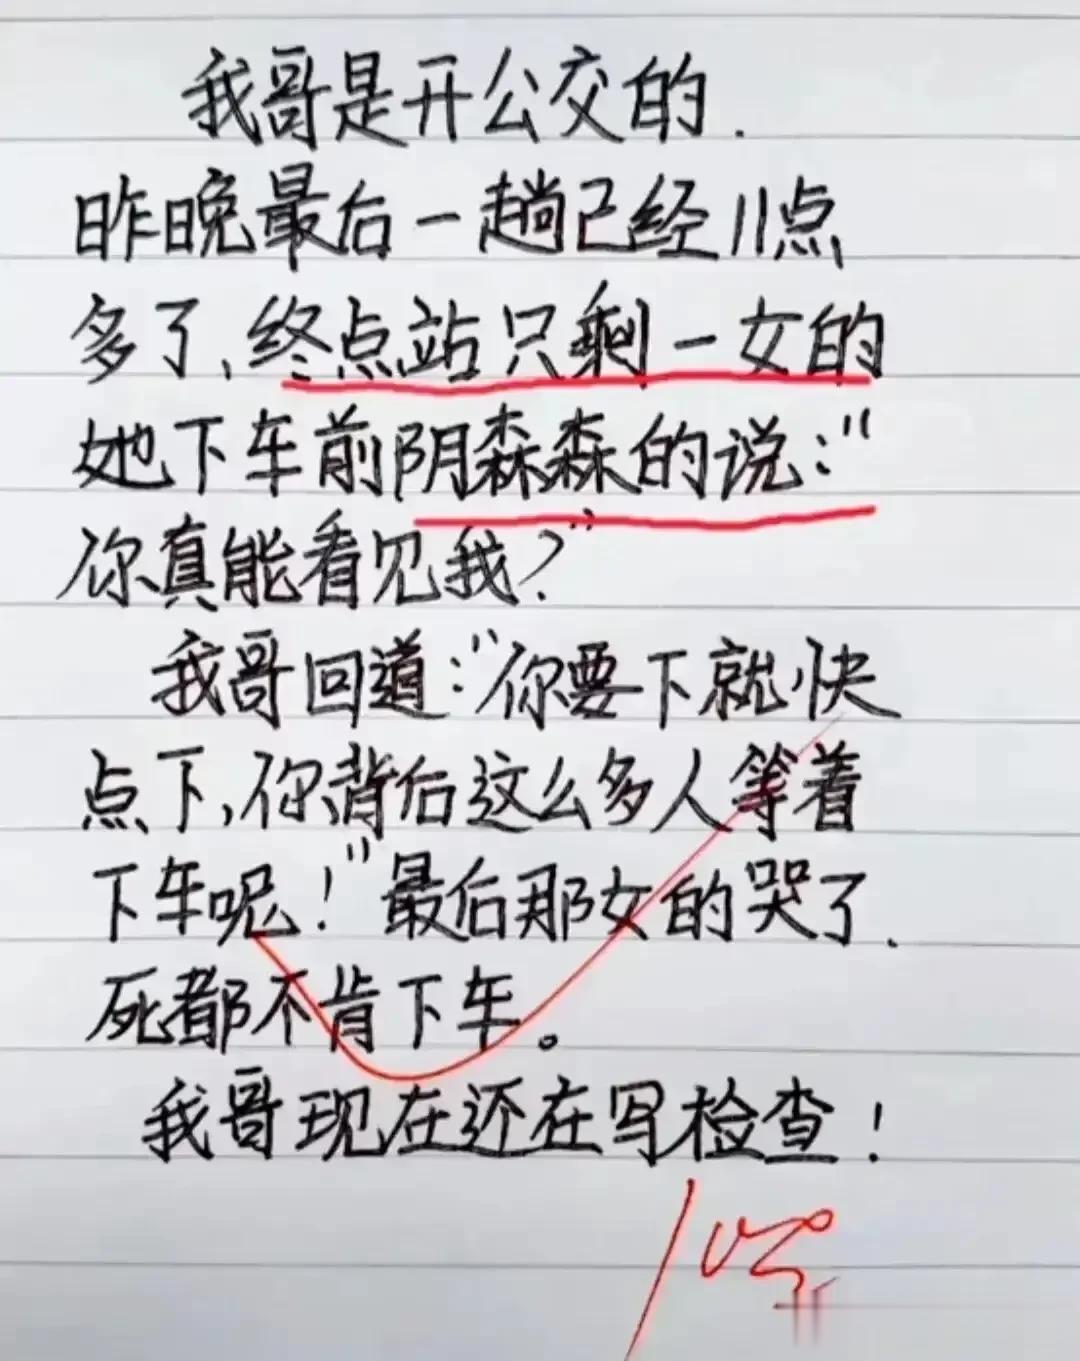 我哥是开公交的.
昨晚最后一趟已经11点
多了,终点站只剩一女的
她下车前阴森森的说:"
你真能看见我?"
我哥回道:"你要下就快
点下,你背后这么多人等着
下车呢!"最后那女的哭了.
死都不肯下车。
我哥现在还在写检查!